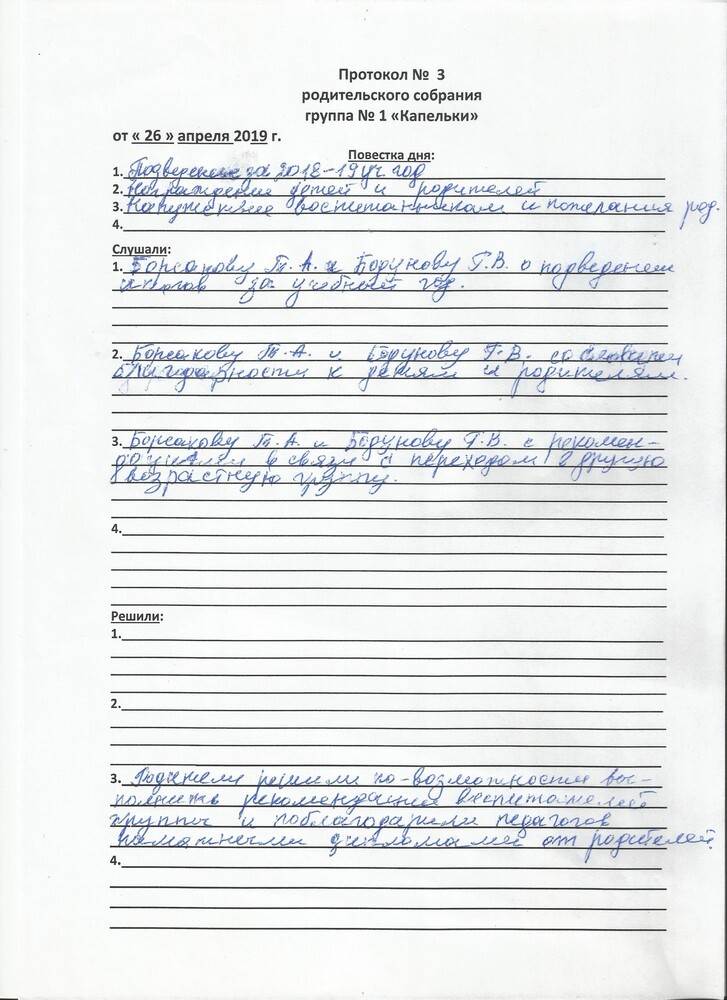 Протокол № 3
родительского собрания
группа № 1 «Капельки»
от « 26 » апреля 2019 г.
Повестка дня:
1. за 2018-19 уч год
2. Награждение детей и родителей
3. воспитанникам и пожелания род.
4.
Слушали:
1. Борсакову Т.А. и Бодунову Г.В. о подведении
итогов за учебный год.
2. Борсакову Т.А. и Бодунову Г.В. со словами
благодарности к детям и родителям.
3. Борсакову Т.А. и Бодунову Г.В. с рекомен-
дациями в связи с переходом в другую
возрастную группу.
4.
Решили:
1.
2.
3. Родители решили по-возможности вы-
полнить рекомендации воспитателей
группы и поблагодарили педагогов
памятными дипломами от родителей.
4.